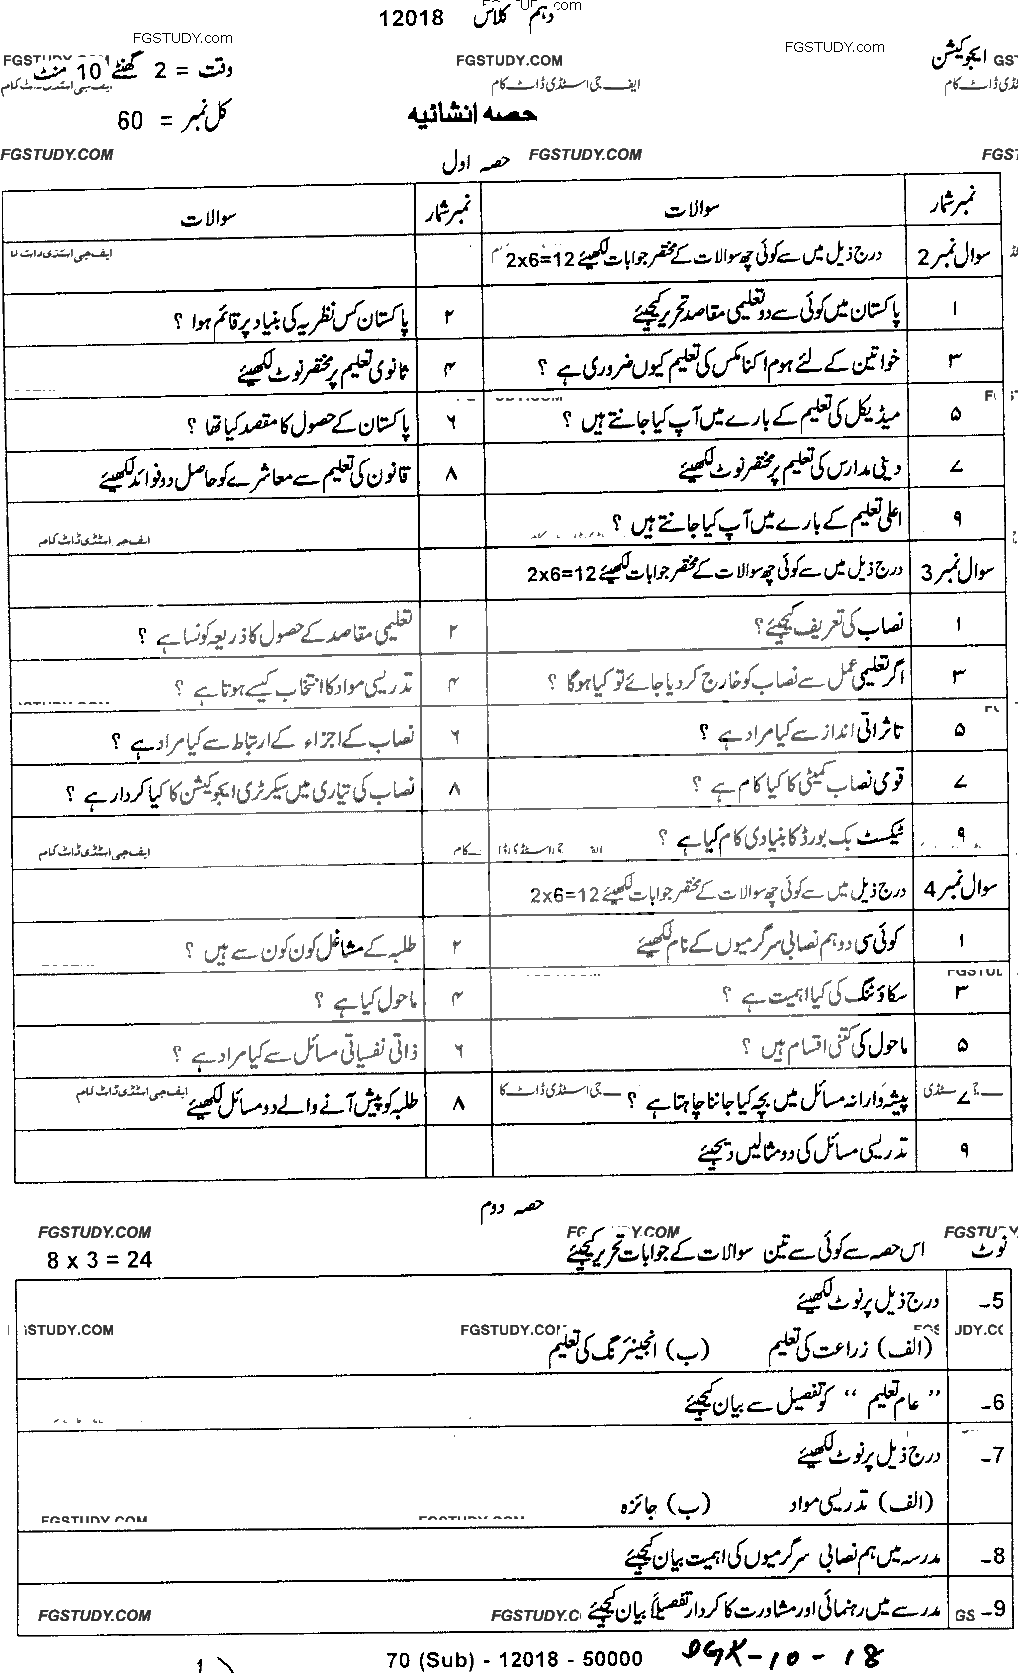 دہم کلاس 12018
FGSTUDY.com
ایجوکیشن
وقت = 2 گھنٹے 10 منٹ
FGSTUDY.COM
ایف جی اسٹڈی ڈاٹ کام
حصہ انشائیہ
کل نمبر = 60
حصہ اول
FGSTUDY.COM FGSTUDY.COM
نمبر شمار سوالات نمبر شمار سوالات
سوال نمبر 2 درج ذیل میں سے کوئی چھ سوالات کے مختصر جوابات لکھیئے 2x6=12
۱ پاکستان میں کوئی سے دو تعلیمی مقاصد تحریر کیجیئے ۲ پاکستان کس نظریہ کی بنیاد پر قائم ہوا ؟
۳ خواتین کے لئے ہوم اکنامکس کی تعلیم کیوں ضروری ہے ؟ ۴ ثانوی تعلیم پر مختصر نوٹ لکھیئے
۵ میڈیکل کی تعلیم کے بارے میں آپ کیا جانتے ہیں ؟ ۶ پاکستان کے حصول کا مقصد کیا تھا ؟
۷ دینی مدارس کی تعلیم پر مختصر نوٹ لکھیئے ۸ قانون کی تعلیم سے معاشرے کو حاصل دو فوائد لکھیئے
۹ اعلیٰ تعلیم کے بارے میں آپ کیا جانتے ہیں ؟
سوال نمبر 3 درج ذیل میں سے کوئی چھ سوالات کے مختصر جوابات لکھیئے 2x6=12
۱ نصاب کی تعریف کیجیئے؟ ۲ تعلیمی مقاصد کے حصول کا ذریعہ کونسا ہے ؟
۳ اگر تعلیمی عمل سے نصاب کو خارج کر دیا جائے تو کیا ہوگا ؟ ۴ تدریسی مواد کا انتخاب کیسے ہوتا ہے ؟
۵ تاثراتی انداز سے کیا مراد ہے ؟ ۶ نصاب کے اجزاء کے ارتباط سے کیا مراد ہے ؟
۷ قومی نصاب کمیٹی کا کیا کام ہے ؟ ۸ نصاب کی تیاری میں سیکرٹری ایجوکیشن کا کیا کردار ہے ؟
۹ ٹیکسٹ بک بورڈ کا بنیادی کام کیا ہے ؟
سوال نمبر 4 درج ذیل میں سے کوئی چھ سوالات کے مختصر جوابات لکھیئے 2x6=12
۱ کوئی سی دو ہم نصابی سرگرمیوں کے نام لکھیئے ۲ طلبہ کے مشاغل کون کون سے ہیں ؟
۳ سکاؤٹنگ کی کیا اہمیت ہے ؟ ۴ ماحول کیا ہے ؟
۵ ماحول کی کتنی اقسام ہیں ؟ ۶ ذاتی نفسیاتی مسائل سے کیا مراد ہے ؟
۷ پیشہ وارانہ مسائل میں بچہ کیا جاننا چاہتا ہے ؟ ۸ طلبہ کو پیش آنے والے دو مسائل لکھیئے
۹ تدریسی مسائل کی دو مثالیں دیجیئے
حصہ دوم
FGSTUDY.COM
نوٹ اس حصہ سے کوئی سے تین سوالات کے جوابات تحریر کیجیئے 8 x 3 = 24
5۔ درج ذیل پر نوٹ لکھیئے
(الف) زراعت کی تعلیم (ب) انجینئرنگ کی تعلیم
6۔ " عام تعلیم " کو تفصیل سے بیان کیجیئے
7۔ درج ذیل پر نوٹ لکھیئے
(الف) تدریسی مواد (ب) جائزہ
8۔ مدرسہ میں ہم نصابی سرگرمیوں کی اہمیت بیان کیجیئے
9۔ مدرسے میں رہنمائی اور مشاورت کا کردار تفصیلاً بیان کیجیئے
FGSTUDY.COM
70 (Sub) - 12018 - 50000 DGK-10-18